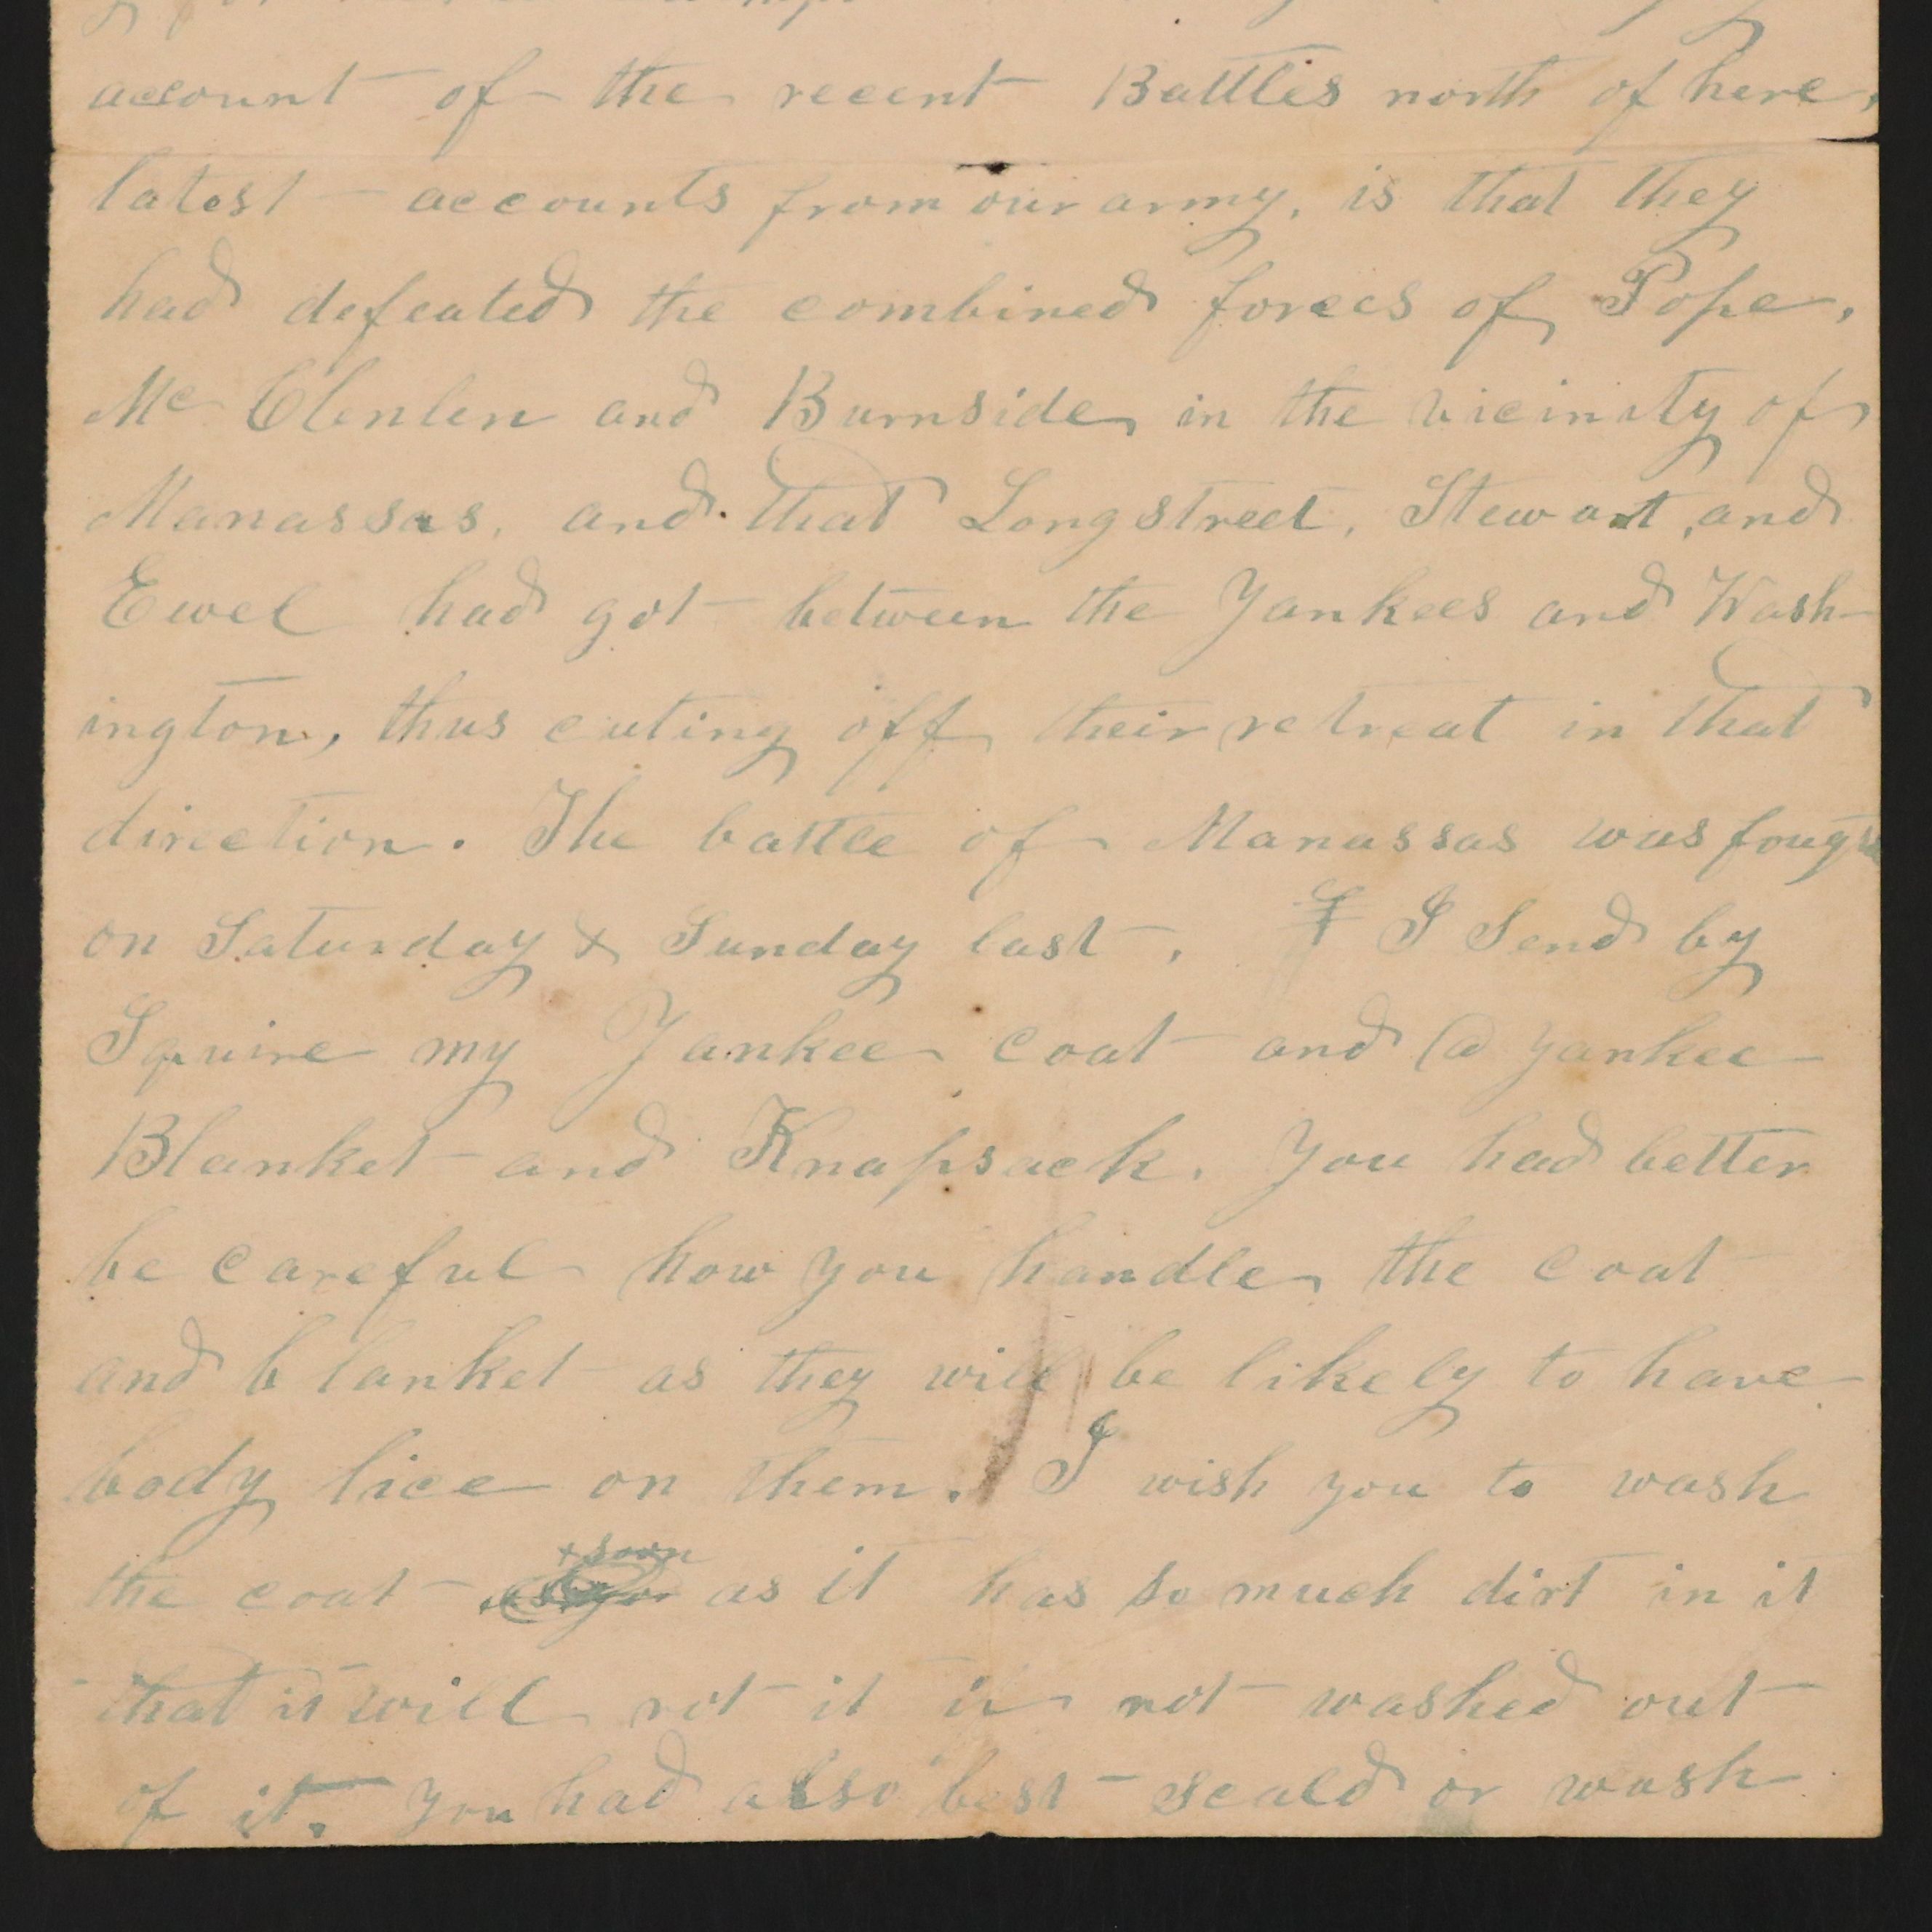 account of the recent Battles north of here,
latest accounts from our army, is that they
had defeated the combined forces of Pope,
Mc Clenlen and Burnside in the vicinity of
Manassas, and that Longstreet, Stewart, and
Ewel had got between the Yankees and Wash-
ington, thus cuting off their retreat in that
direction. The battle of Manassas was fough
on Saturday & Sunday last. I Send by
Squire my Yankee coat and a yankee
Blanket and Knapsack. You had better
be careful how you handle the coat
and blanket as they will be likely to have
body lice on them. I wish you to wash
the coat soon as it has so much dirt in it
that it will rot it is not washed out
of it. You had also best scald or wash